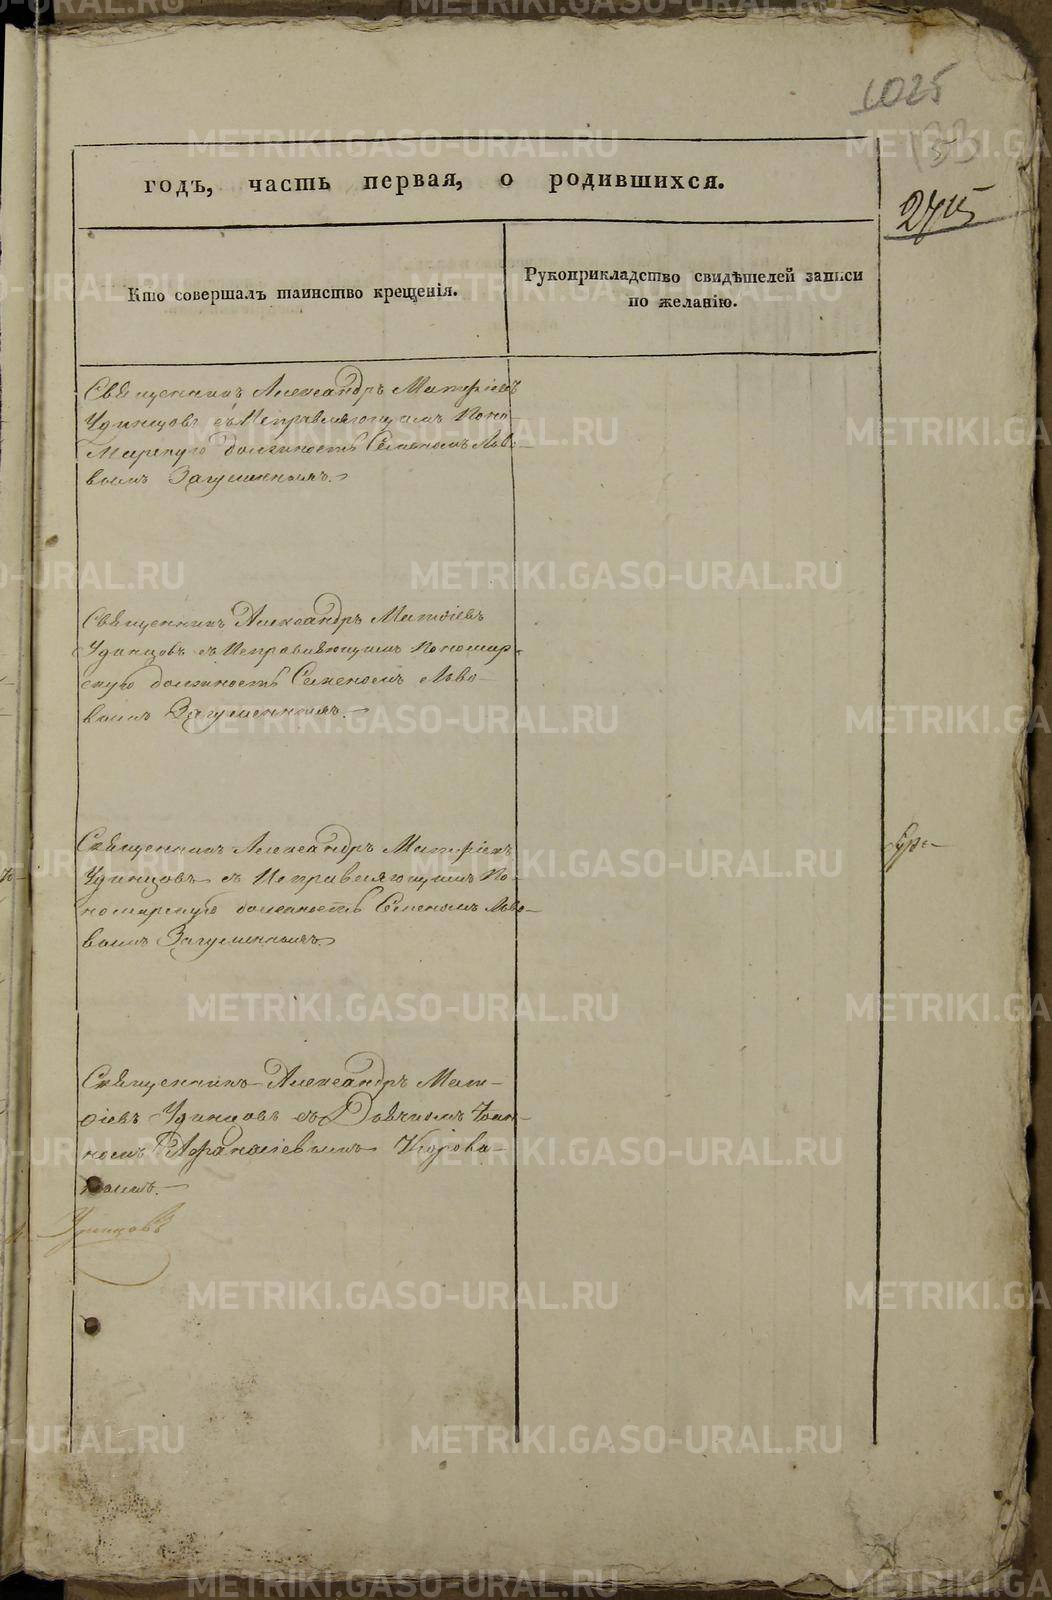 1025
годъ, часть первая, о родившихся.
Кто совершалъ таинство крещенія.
Рукоприкладство свидѣтелей записи
по желанію.
Священникъ Александръ Матѳіевъ
Удинцовъ съ Исправляющимъ Поно-
марскую должность Семеномъ Льво-
вымъ Загуменнымъ.
Священникъ Александръ Матѳіевъ
Удинцовъ съ Исправляющимъ Пономар-
скую должность Семеномъ Льво-
вымъ Загуменнымъ.
Священникъ Александръ Матѳіевъ
Удинцовъ съ Исправляющимъ По-
номарскую должность Семеномъ Льво-
вымъ Загуменнымъ.
Священникъ Александръ Мат-
ѳіевъ Удинцовъ съ Іоан-
номъ Афанасіевымъ
Удинцовъ
METRIKI.GASO-URAL.RU